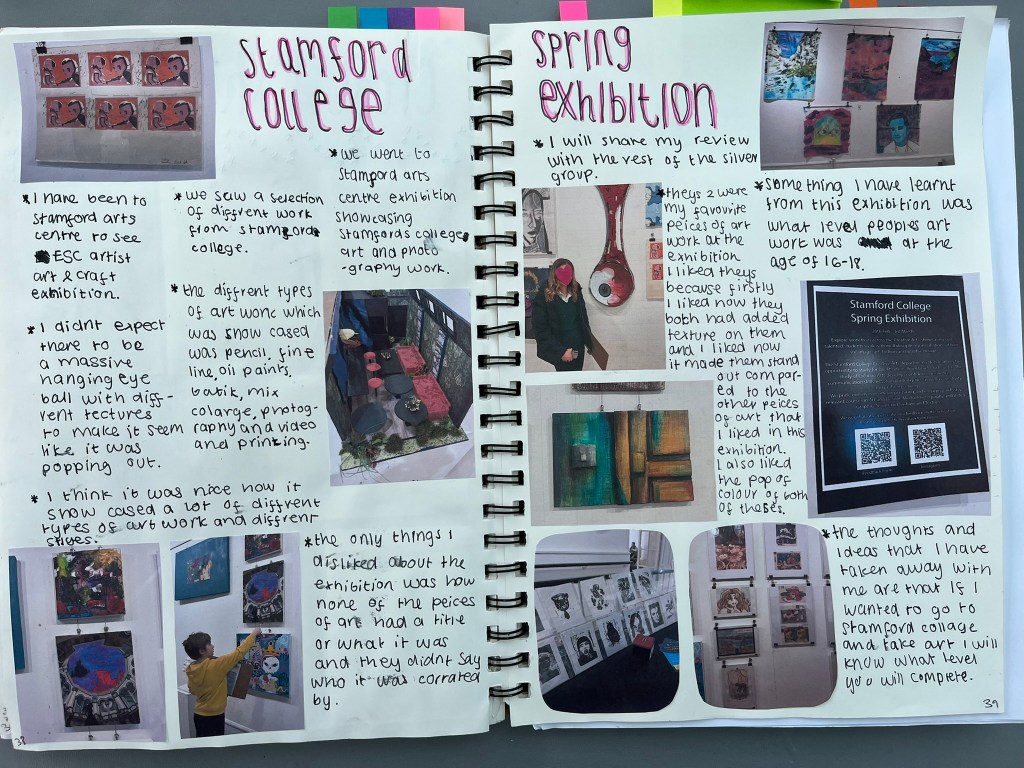 Stamford
College
* I have been to
Stamford arts
centre to see
ESC artist
art & craft
exhibition.
* we saw a selection
of diffrent work
from stamford
college.
* we went to
Stamford arts
centre exhibition
showcasing
Stamfords college
art and photo
-graphy work.
* I didnt expect
there to be
a massive
hanging eye
ball with diff-
rent tectures
to make it seem
like it was
popping out.
* the diffrent types
of art work which
was show cased
was pencil, fine
line, oil paints,
batik, mix
colarge, photog-
raphy and video
and printing.
* I think it was nice how it
show cased a lot of diffrent
types of art work and diffrent
styles.
* the only things I
disliked about the
exhibition was how
none of the peices
of art had a title
or what it was
and they didnt say
who it was corrated
by.
38
Spring
exhibition
* I will share my review
with the rest of the silver
group.
* theys 2 were
my favorite
peices of art
work at the
exhibition
I liked theys
because firstly
I liked how they
both had added
texture on them
and I liked how
it made them stand
out compar-
ed to the
other peices
of art that
I liked in this
exhibition.
I also liked
the pop of
colour of both
of theses.
* something I have learnt
from this exhibition was
what level peoples art
work was at the
age of 16-18.
Stamford College
Spring Exhibition
* the thoughts and
ideas that I have
taken away with
me are that if I
wanted to go to
Stamford collage
and take art I will
know what level
you will complete.
39